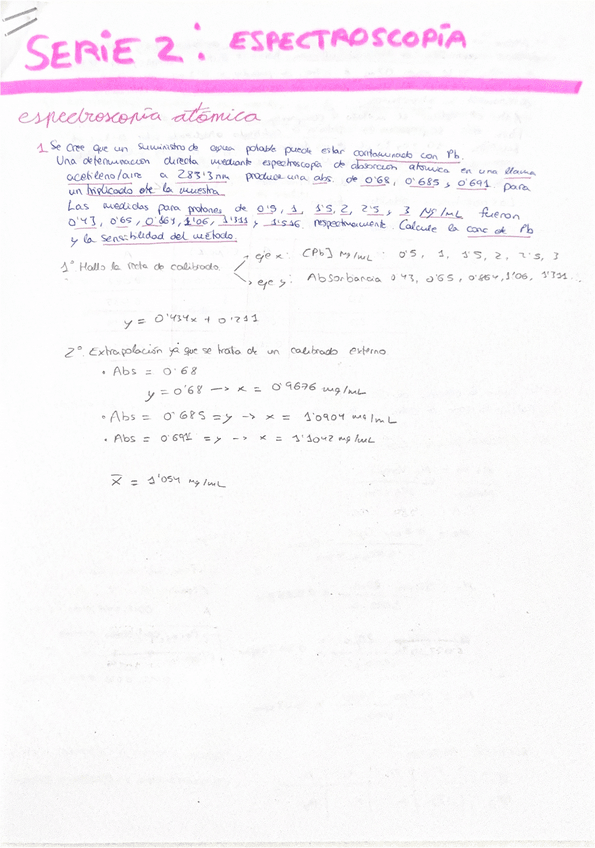 SERIE 2: ESPECTROSCOPÍA
espectroscopía atómica
1 Se cree que un suministro de agua potable puede estar contaminado con Pb.
Una determinación directa mediante espectroscopía de absorción atómica en una llama
acetileno/aire a 283'3 nm produce una abs. de 0'68, 0'685 y 0'691 para
un triplicado de la muestra.
Las medidas para patrones de 0'5, 1, 1'5, 2, 2'5 y 3 μg/mL fueron
0'43, 0'65, 0'864, 1'06, 1'311 y 1'516 respectivamente. Calcule la conc de Pb
y la sensibilidad del método.
1º Hallo la recta de calibrado
eje x: [Pb] μg/mL : 0'5, 1, 1'5, 2, 2'5, 3
eje y: Absorbancia 0'43, 0'65, 0'864, 1'06, 1'311...
y = 0'434x + 0'211
2º Extrapolación ya que se trata de un calibrado externo
• Abs = 0'68
y = 0'68 → x = 0'9676 mg/mL
• Abs = 0'685 = y → x = 1'0904 mg/mL
• Abs = 0'691 = y → x = 1'1042 mg/mL
x̄ = 1'054 mg/mL